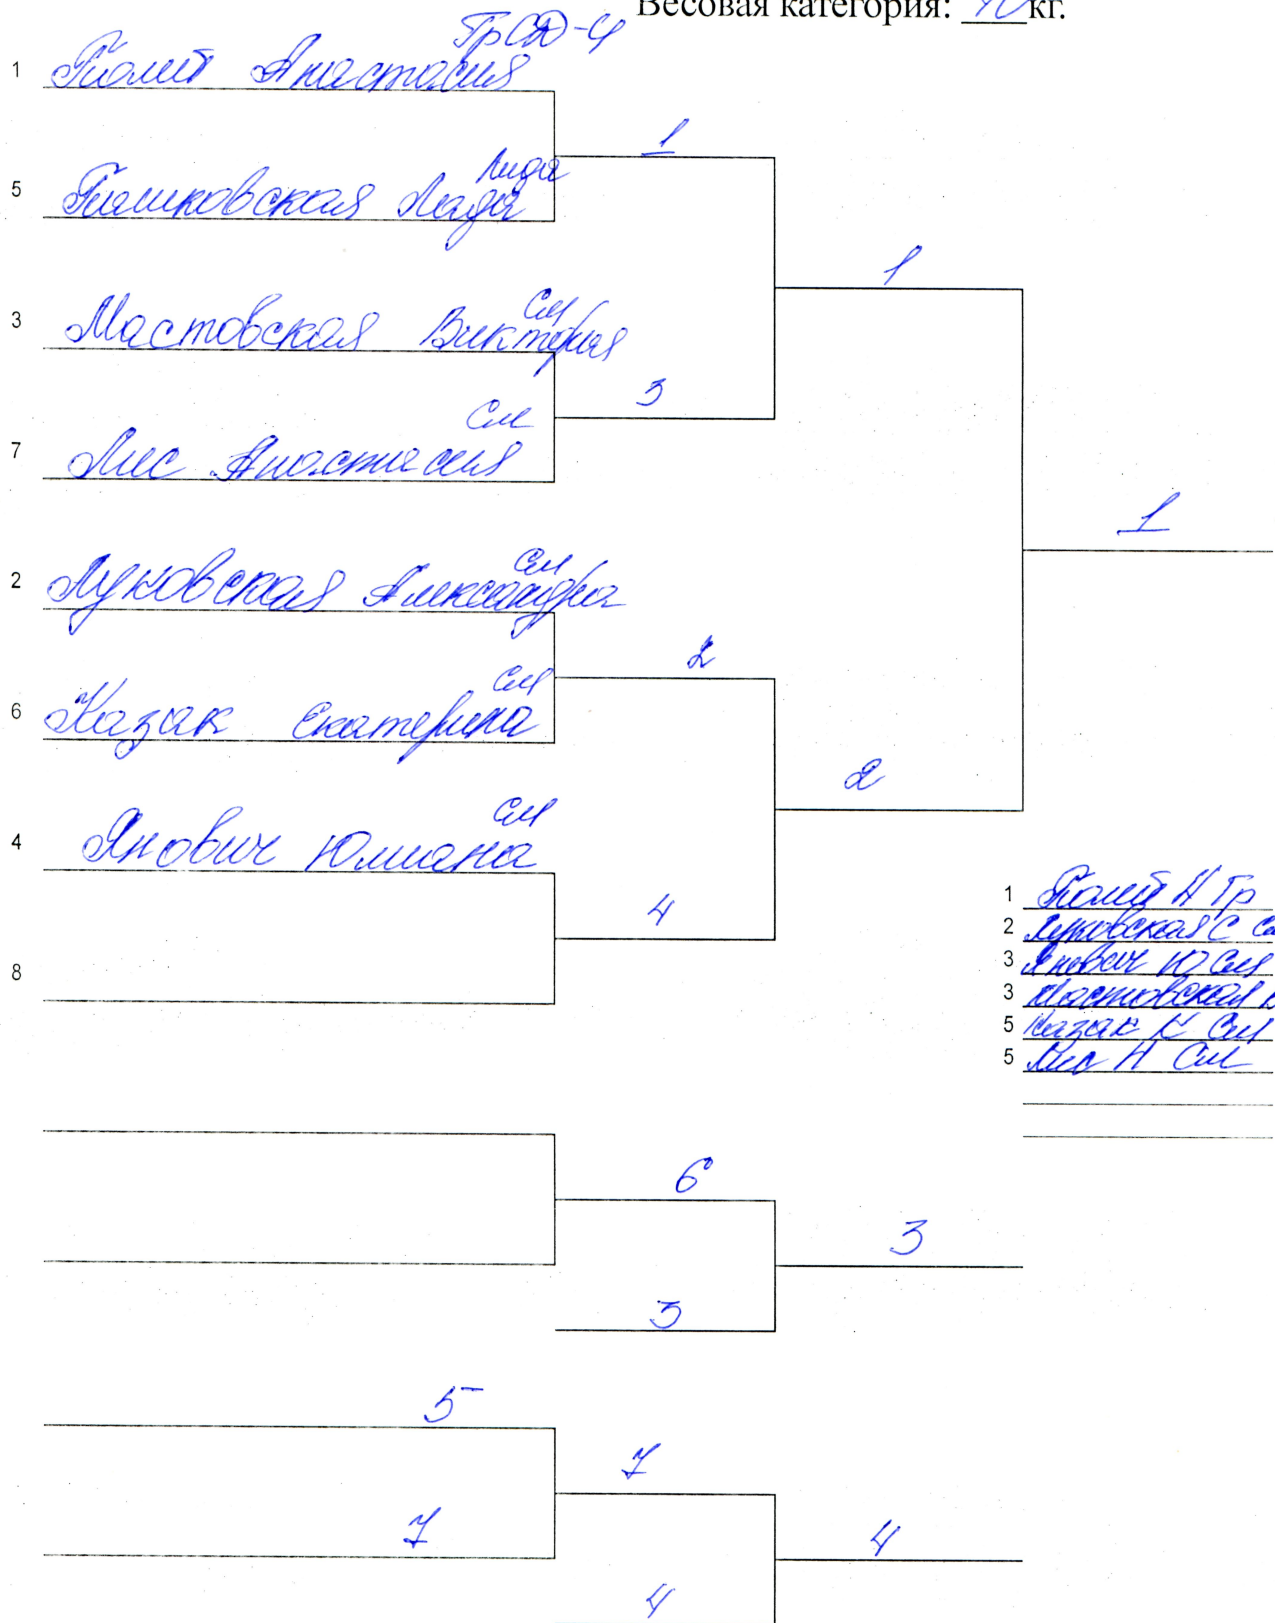 Весовая категория: 40 кг.
1 Анастасия
5 Лида
3 Мастовская Виктория См
7 Лис Анастасия См
2 Луковская Александра См
6 Казак Екатерина См
4 Янович Юлиана См
8
1
3
2
4
1
2
1
1 Гр
2 Луковская С
3 Янович Ю См
3 Мастовская
5 Казак К См
5 Лис Н См
6
3
3
5
7
7
4
4